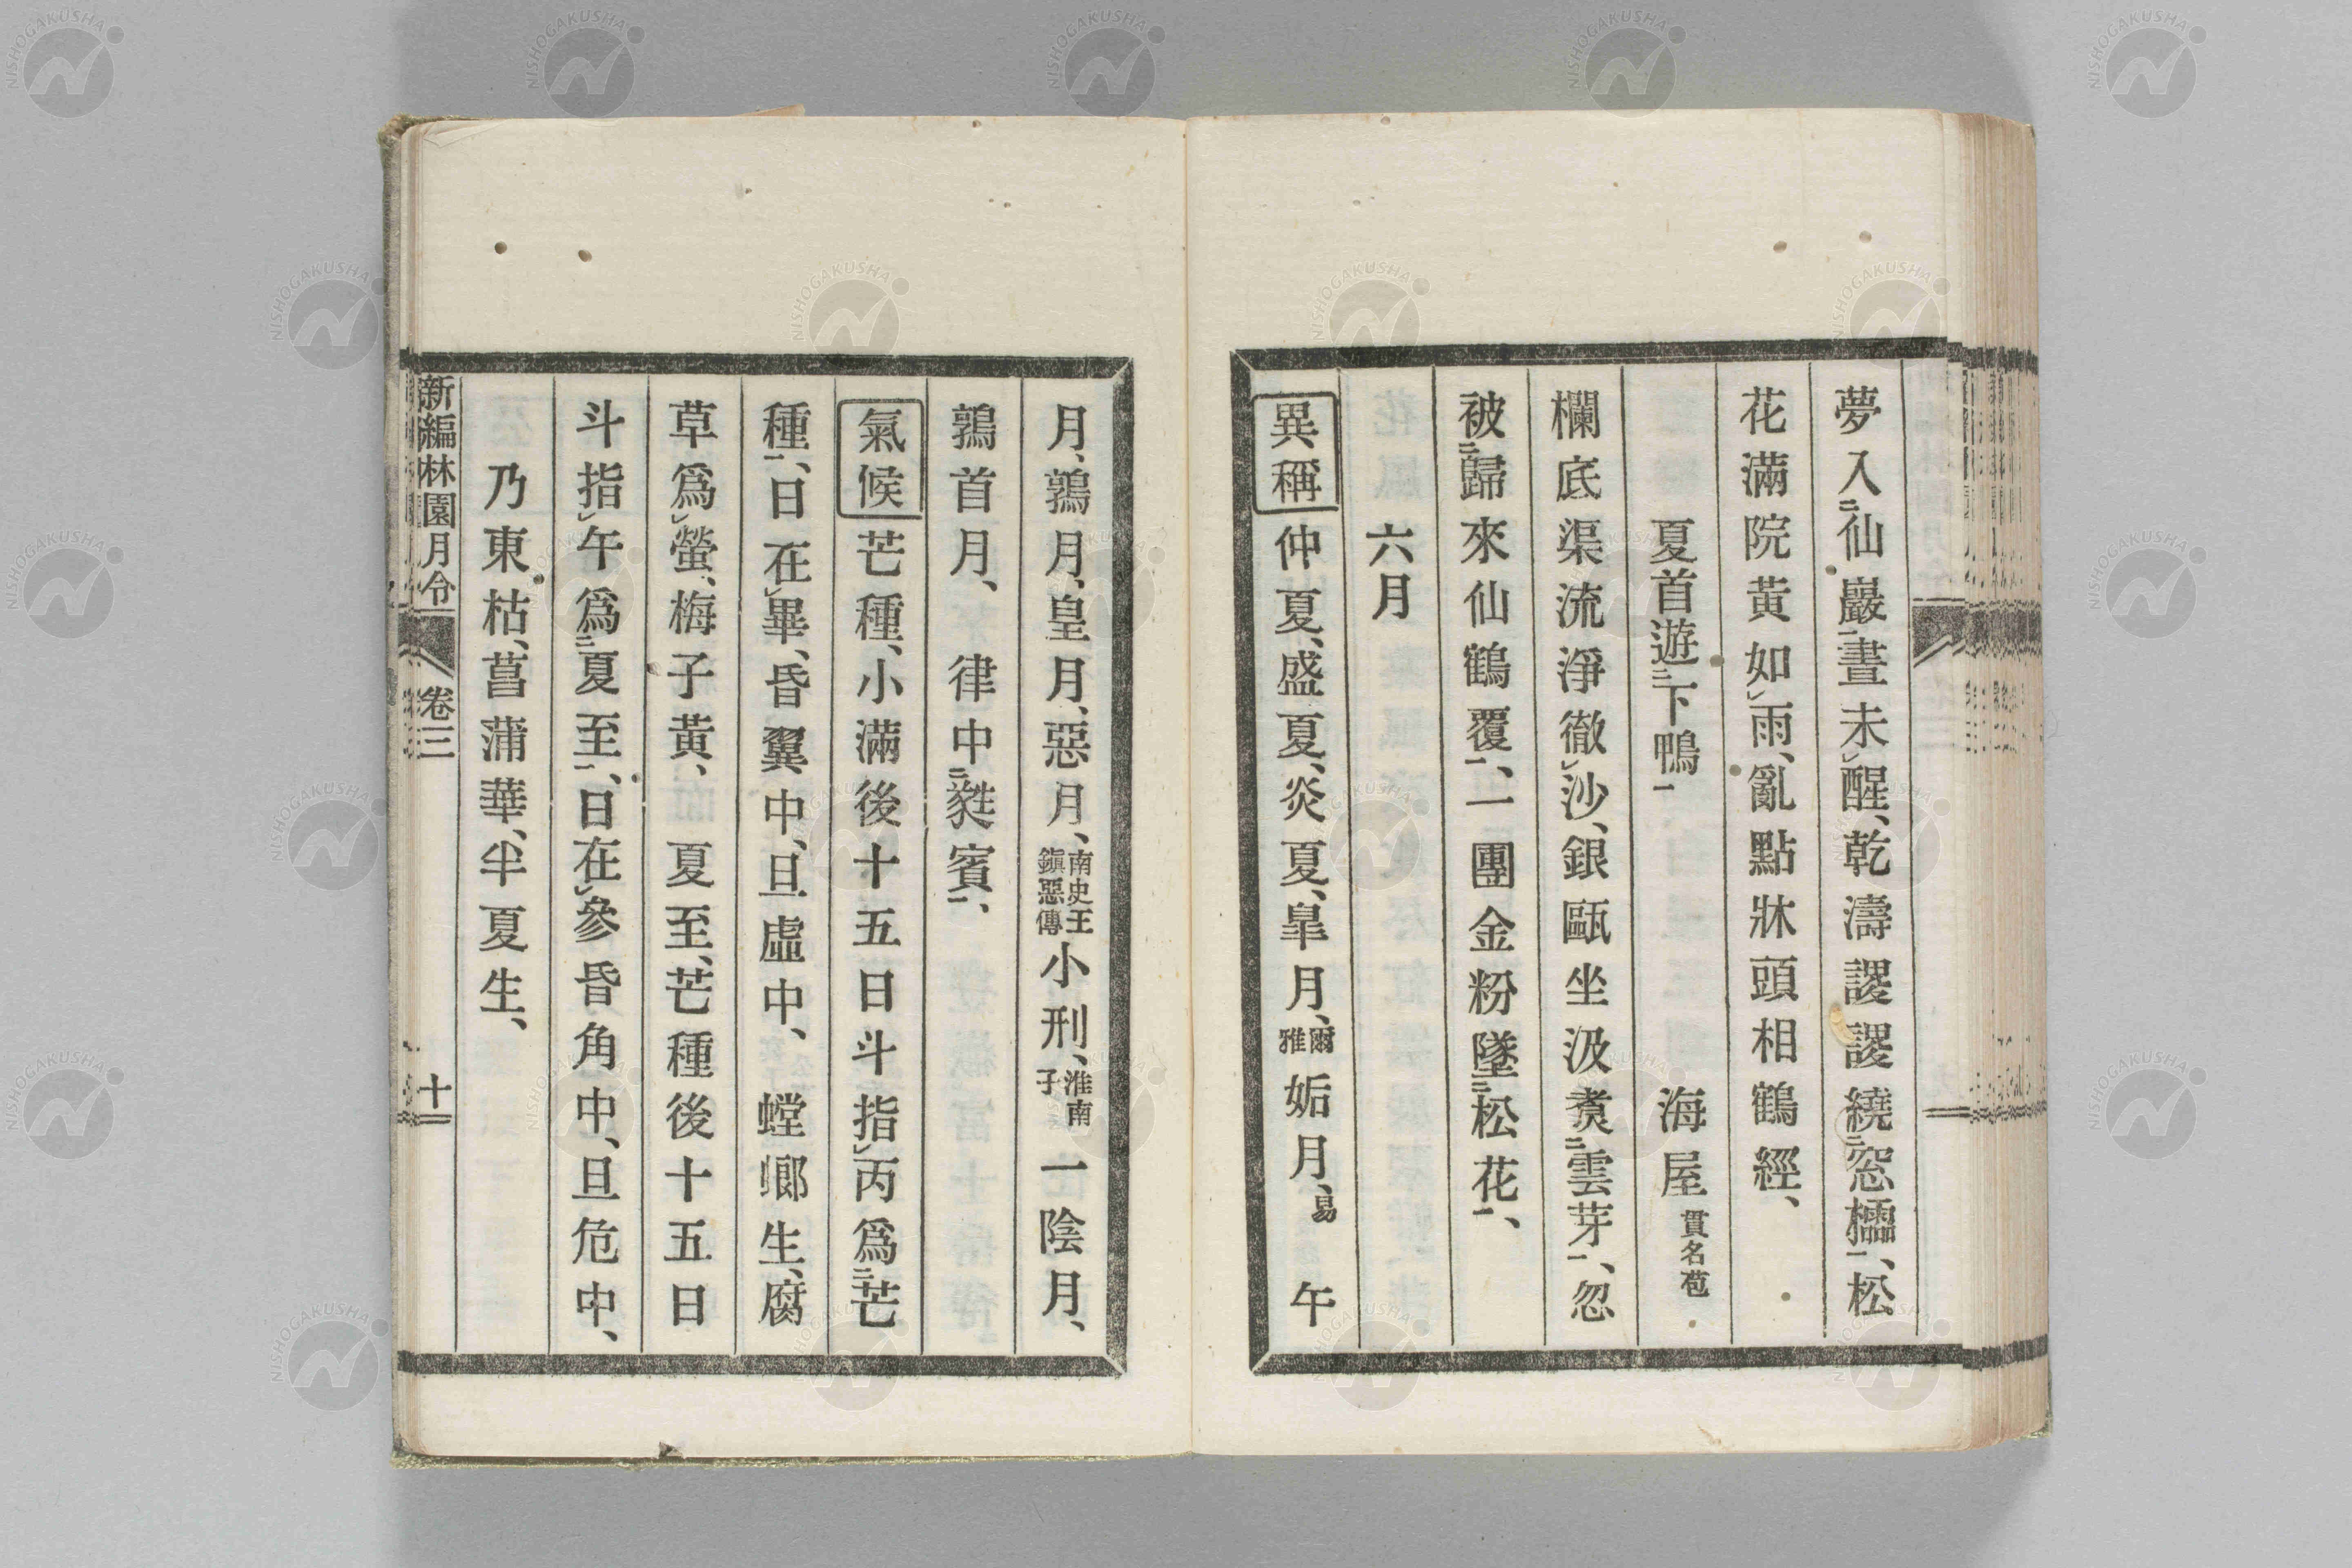 夢入二仙巖一晝未レ醒、乾濤謖謖繞二窓櫺一、松
花滿院黃如レ雨、亂點牀頭相鶴經、
夏首遊二下鴨一 海屋 貫名苞
欄底渠流淨徹レ沙、銀甌坐汲煑二雲芽一、忽
被二歸來仙鶴覆一、一團金粉墜二松花一、
六月
異稱 仲夏、盛夏、炎夏、皐月、爾雅 姤月、易 午
月、鶉月、皇月、惡月、南史王鎭惡傳 小刑、淮南子 一陰月、
鶉首月、 律中二蕤賓一、
氣候 芒種、小滿後十五日斗指レ丙爲二芒
種一、日在レ畢、昏翼中、旦虛中、 螳螂生、腐
草爲レ螢、梅子黃、 夏至、芒種後十五日
斗指レ午爲二夏至一、日在レ參昏角中、旦危中、
乃東枯、菖蒲華、半夏生、
新編林園月令 卷三 十
NISHOGAKUSHA